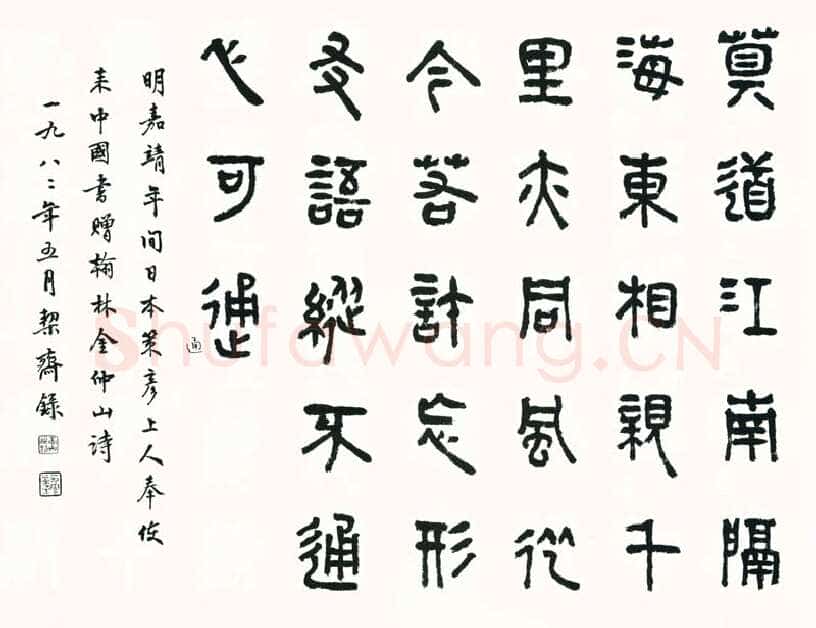 莫道江南隔
海東相親千
里亦同風從
今若許忘形
友語縱不通
心可通
通
明嘉靖年間日本策彥上人奉使
来中國書贈翰林金仲山詩
一九八二年五月契齋錄
Shufawang.CN